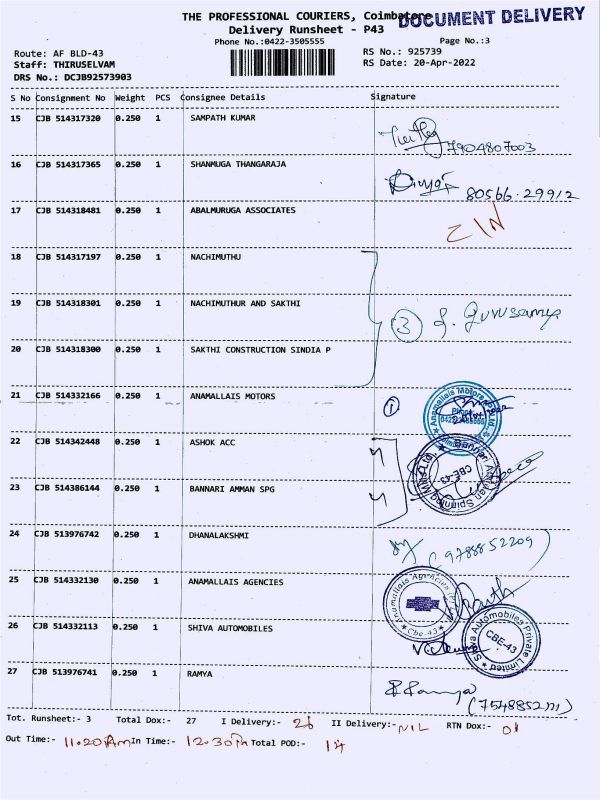 THE PROFESSIONAL COURIERS, Coimbatore
DOCUMENT DELIVERY
Delivery Runsheet - P43
Phone No.:0422-3505555
Page No.:3
Route: AF BLD-43
RS No.: 925739
Staff: THIRUSELVAM
RS Date: 20-Apr-2022
DRS No.: DCJB92573903
S No Consignment No Weight PCS Consignee Details Signature
15 CJB 514317320 0.250 1 SAMPATH KUMAR
7904807003
16 CJB 514317365 0.250 1 SHANMUGA THANGARAJA
80566-29912
17 CJB 514318481 0.250 1 ABALMURUGA ASSOCIATES
18 CJB 514317197 0.250 1 NACHIMUTHU
19 CJB 514318301 0.250 1 NACHIMUTHUR AND SAKTHI
3 S. Gurusamy
20 CJB 514318300 0.250 1 SAKTHI CONSTRUCTION SINDIA P
21 CJB 514332166 0.250 1 ANAMALLAIS MOTORS
1
22 CJB 514342448 0.250 1 ASHOK ACC
Bannari Amman Spinning Mills Ltd. CBE-43
23 CJB 514386144 0.250 1 BANNARI AMMAN SPG
24 CJB 513976742 0.250 1 DHANALAKSHMI
(9788852209)
25 CJB 514332130 0.250 1 ANAMALLAIS AGENCIES
Anamallais Agencies Cbe-43
26 CJB 514332113 0.250 1 SHIVA AUTOMOBILES
Shiva Automobiles Private Limited CBE-43
27 CJB 513976741 0.250 1 RAMYA
R Ramya
(7548852111)
Tot. Runsheet:- 3 Total Dox:- 27 I Delivery:- 26 II Delivery:- NIL RTN Dox:- 01
Out Time:- 11.20Am In Time:- 12.30Pm Total POD:- 14